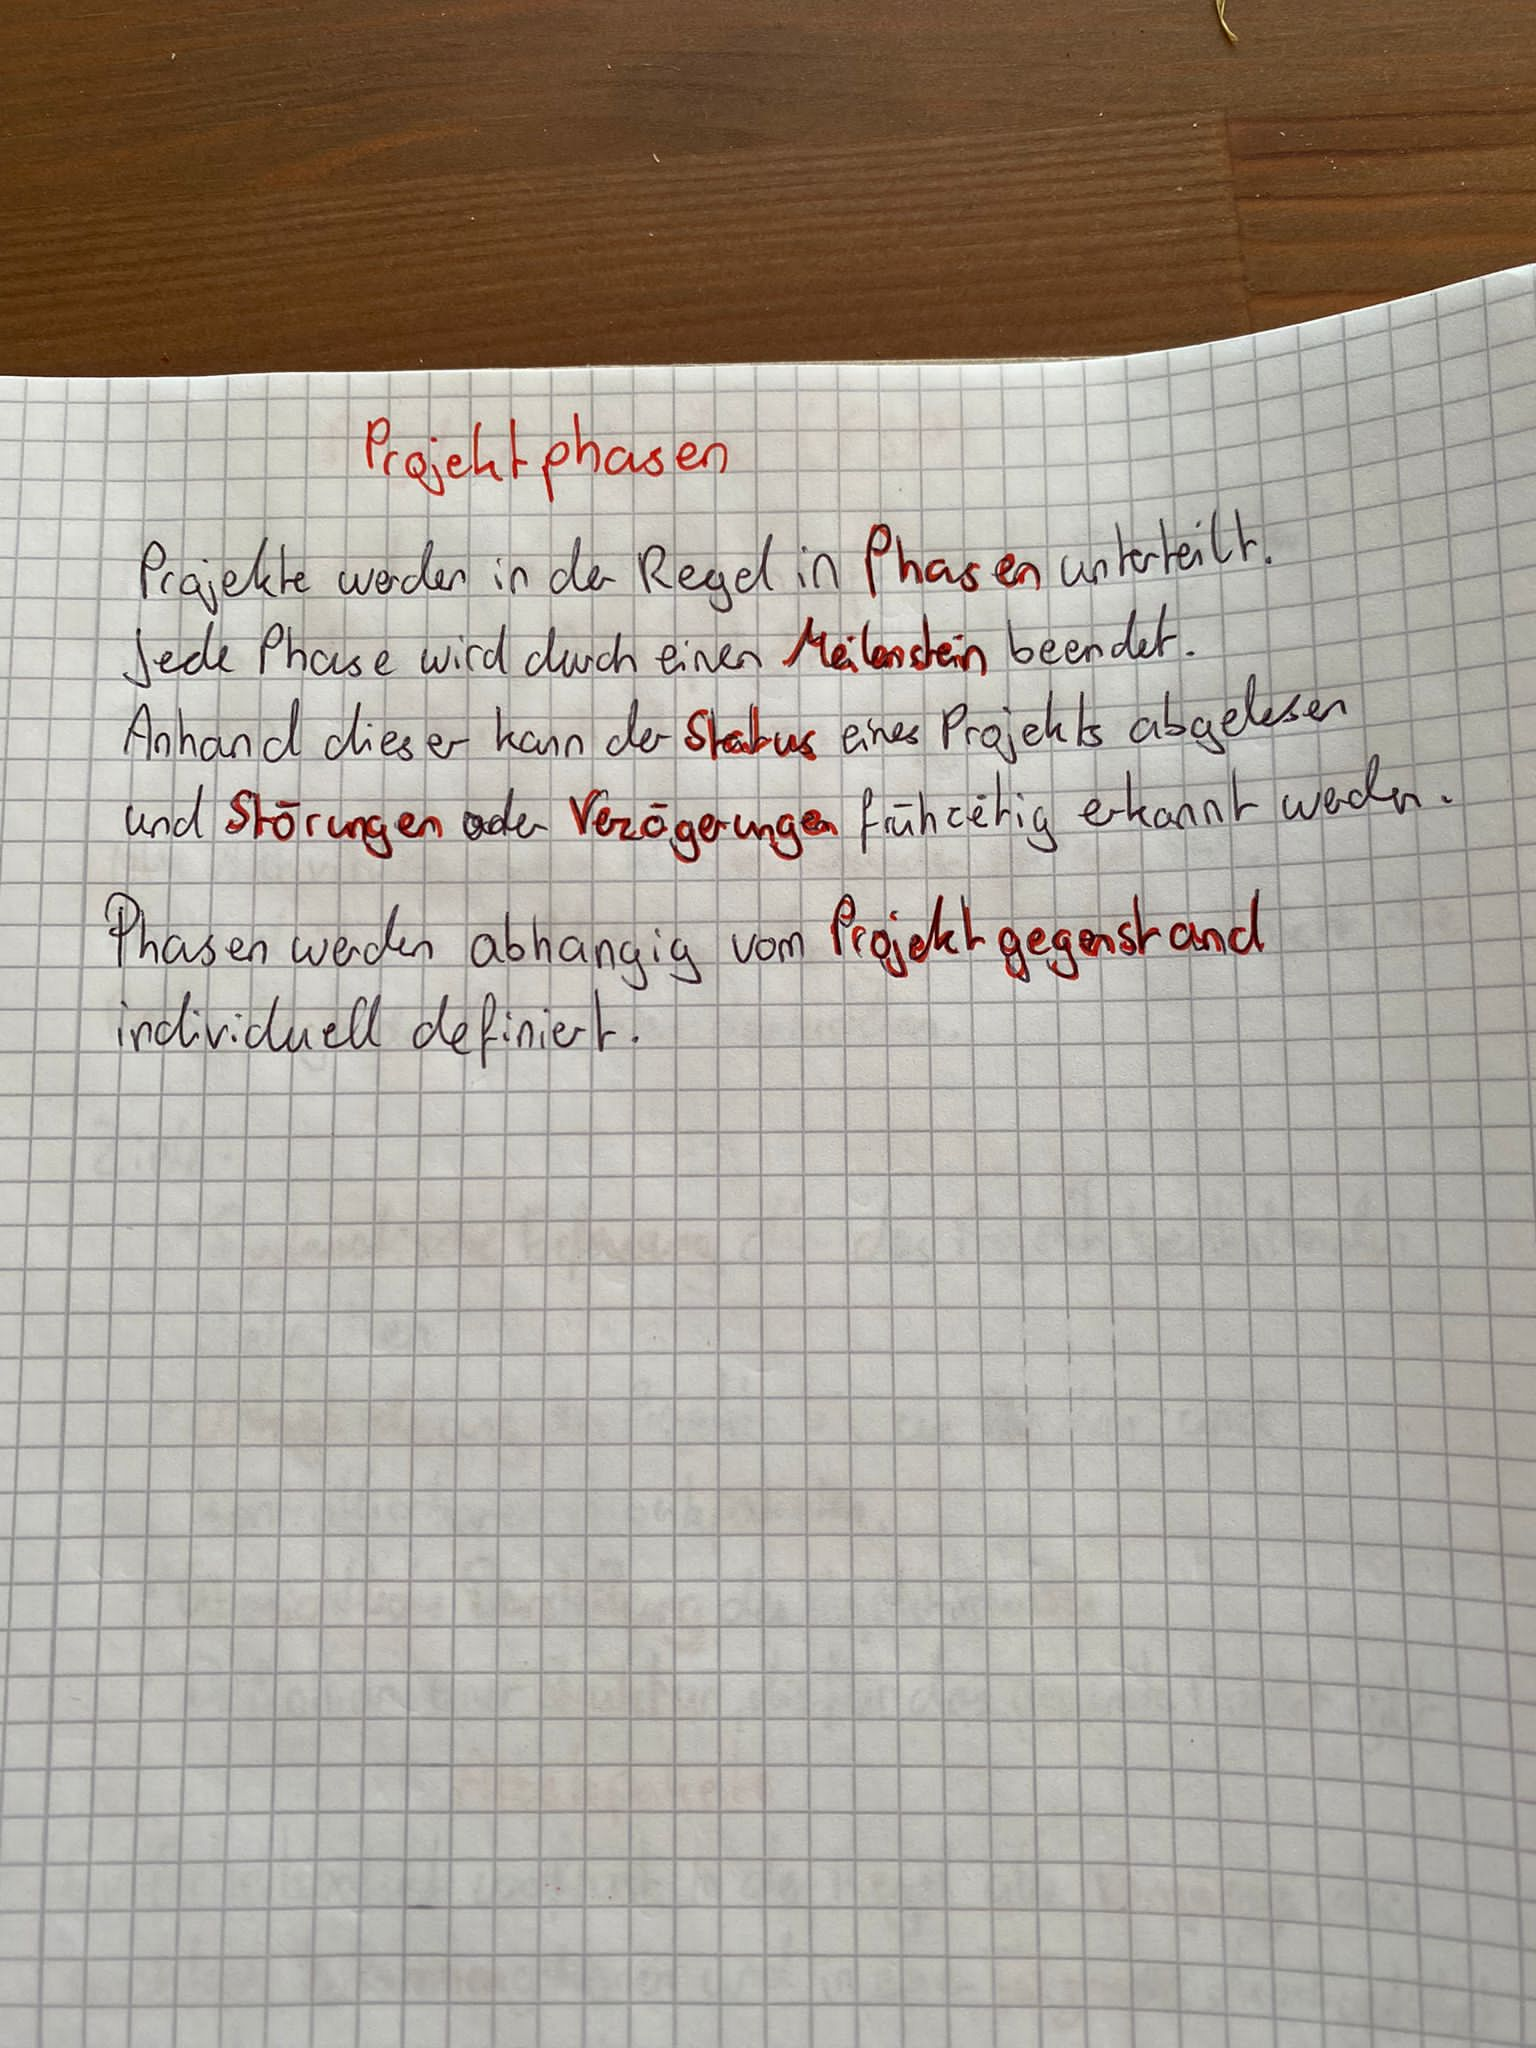 Projektphasen
Projekte werden in der Regel in Phasen unterteilt.
Jede Phase wird durch einen Meilenstein beendet.
Anhand dieser kann der Status eines Projekts abgelesen
und Störungen oder Verzögerungen frühzeitig erkannt werden.
Phasen werden abhängig vom Projektgegenstand
individuell definiert.